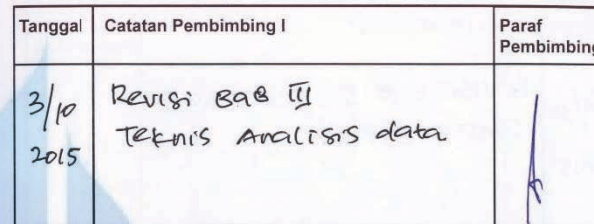 Tanggal Catatan Pembimbing I Paraf
Pembimbing
3/10 Revisi BaB III
2015 Teknis Analisis data